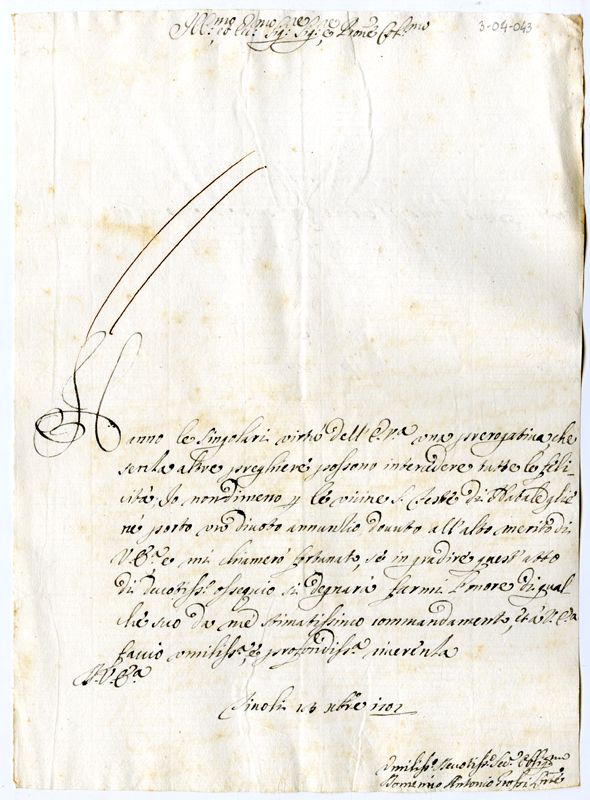 Ill.mo et Ecc.mo Sig.re Sig.re e Prone Col.mo
3-04-043
Hanno le singolari virtù dell'E. V.ra una prerogativa, che
senza altre preghiere possono intercedere tutte le feli-
cità, Io nondimeno p le vicine S. Feste di Natale glie
ne porto un divoto annuntio dovuto all'alto merito di
V. E.a e mi chiamerò fortunato, se in gradire quest'atto
di devotiss.o ossequio si degnarà farmi l'onore di qual
che suo da me stimatissimo commandamento, età V. E.za
faccio umiliss.a, e profondiss.a riverenza
D. V. E.za
Tivoli 15 xbre 1702
Umiliss.o Devotiss.o Ser. Obblig.mo
Domenico Antonio